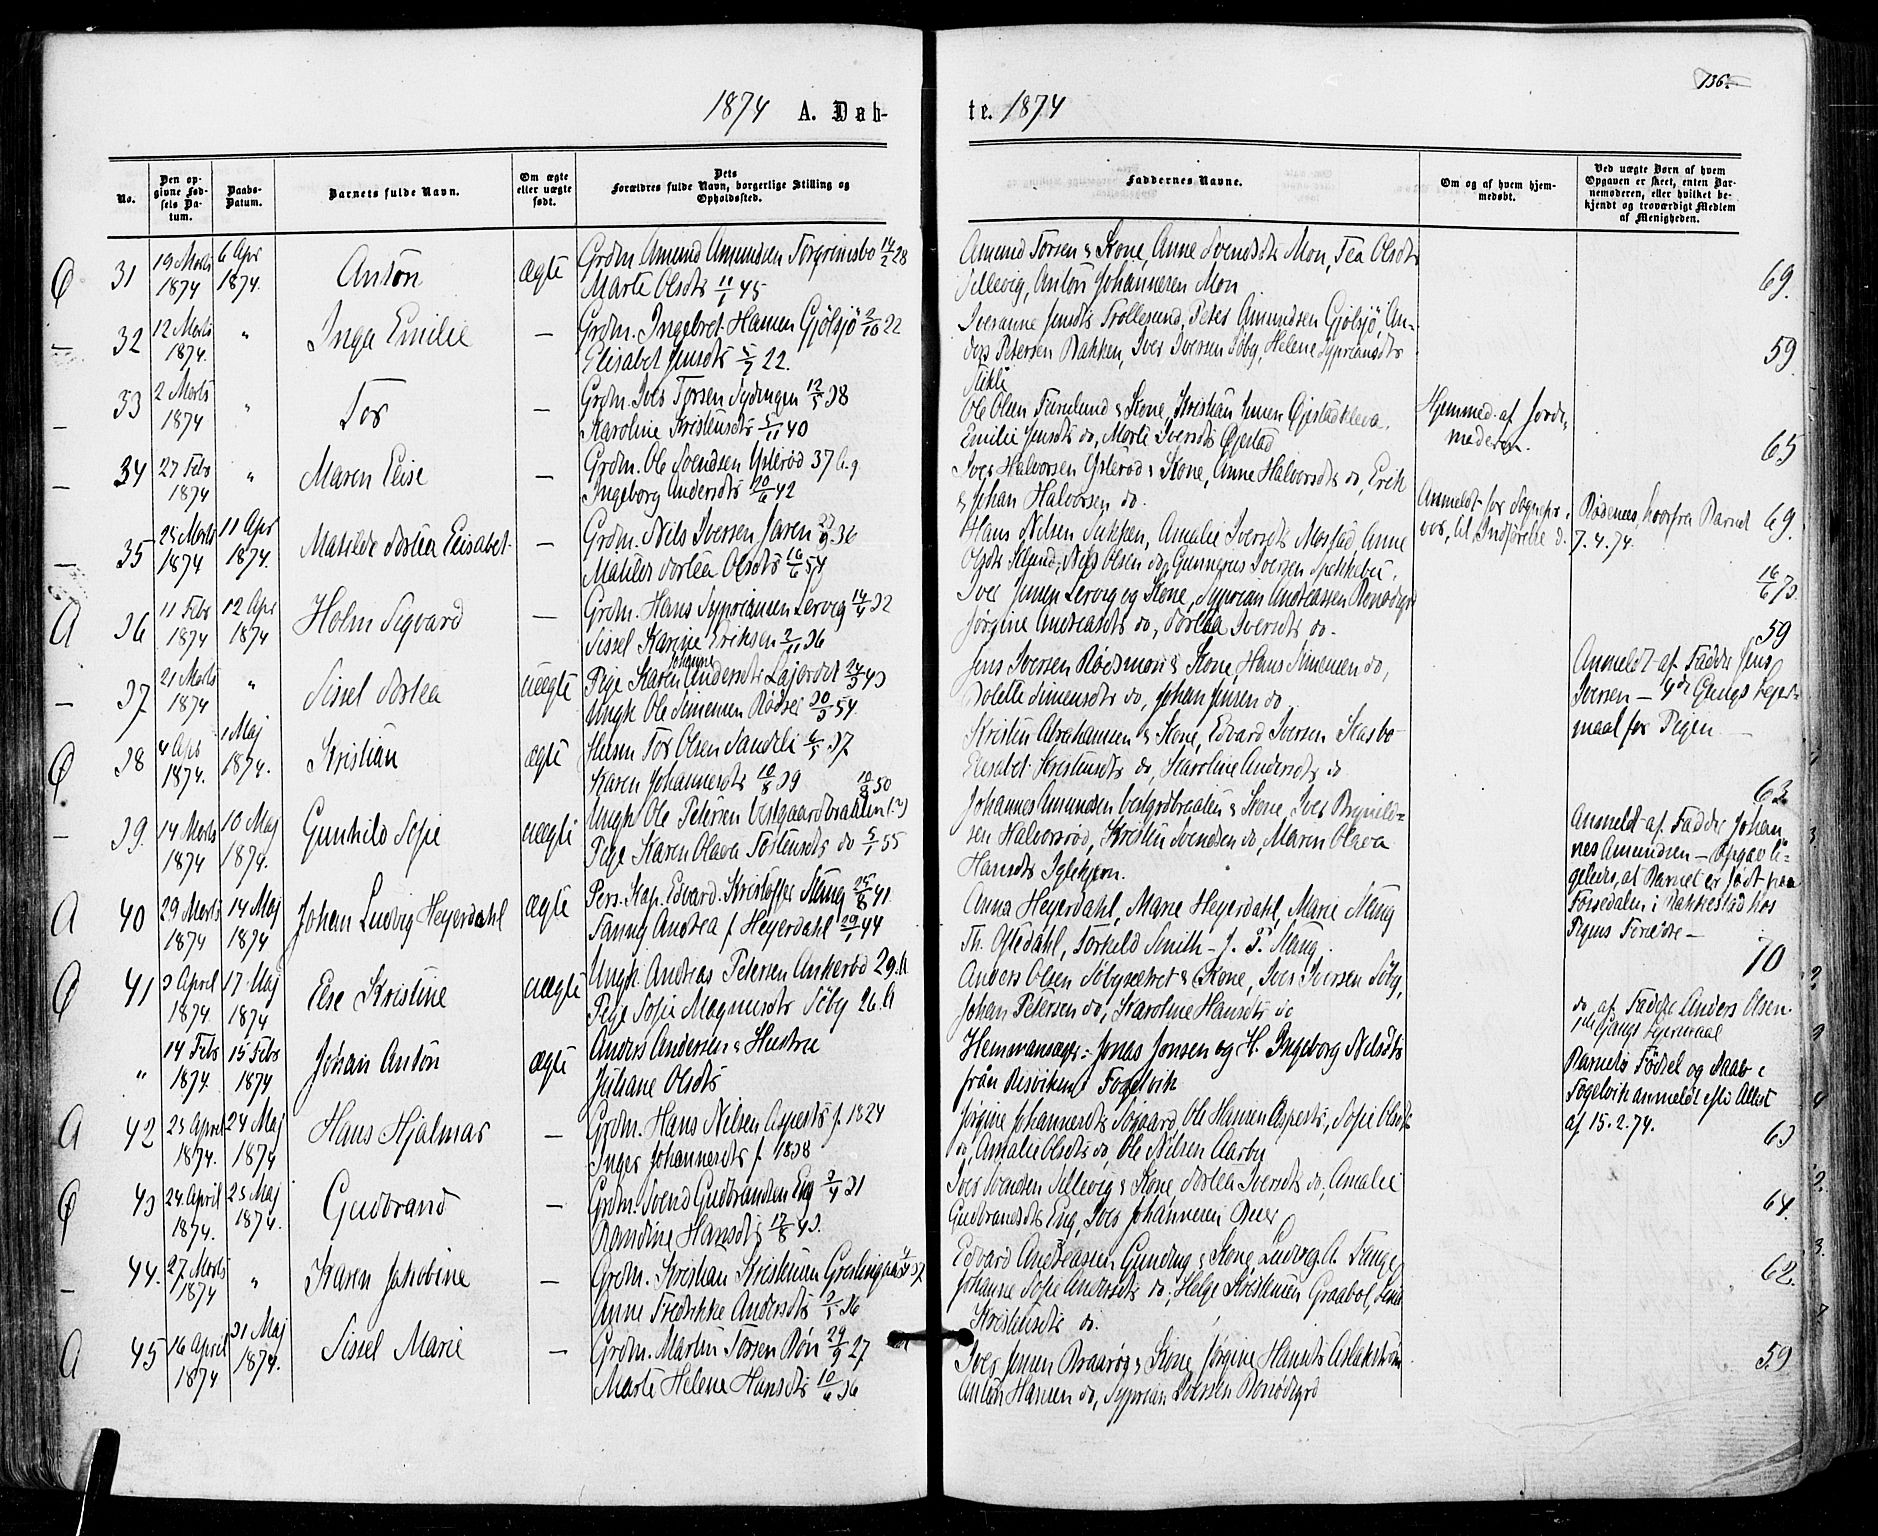 136.
1874 A. Døb-
te. 1874
No.
Den opgivne Fødsels Datum.
Daabs-Datum.
Barnets fulde Navn.
Om ægte eller uægte født.
Dets Forældres fulde Navn, borgerlige Stilling og Opholdssted.
Faddernes Navne.
Om og af hvem hjemmedøbt.
Ved uægte Børn af hvem Opgaven er skeet, enten Barnemoderen, eller hvilket bekjendt og troværdigt Medlem af Menigheden.
31 19 Marts 1874 6 Apr 1874. Anton ægte Grdm. Amund Amundsen Torgrimsbo 14/2 28
Marte Olsdtr 11/1 45
Amund Torsen & Kone, Anne Svendsdtr Mon, Tea Olsdtr
Sillevig, Anton Johannesen Mon
69.
32 12 Marts 1874. " Inga Emilie — Grdm. Ingebret Hansen Gjølsjø 2/10 22
Elisabet Jensdtr 5/7 22.
Iveranne Jensdtr Trollerund, Peter Amundsen Gjølsjø, An-
ders Petersen Bakken, Iver Iversen Søby, Helene Sypriansdtr
59.
33 2 Marts 1874 " Tor — Grdm. Iver Torsen Sydengen 12/5 38
Karoline Kristensdtr 5/11 40
Ole Olsen Furulund & Kone, Kristian Jensen Øjestadkleva.
Emilie Jensdtr do, Marte Iversdtr Øjestad
Hjemmed. af Jorde-
moderen.
65
34 27 Febr 1874 " Maren Elise — Grdm. Ole Svendsen Ysterød 37 b.g.
Ingeborg Andersdtr 20/6 42
Iver Halvorsen Ysterød & Kone, Anne Halvorsdtr do, Erik
& Johan Halvorsen do.
Anmeldt for Sognepr
Rødenes, hvorfra Barnet
7.4.74.
69.
35 25 Marts 1874 11 Apr 1874. Matilde Dorlea Elisabet — Grdm. Nils Iversen Jaren 27/9 36
Matilde Dorlea Olsdtr 16/6 54
Hans Nilsen Sukken, Amalie Iversdtr Mosstad, Anne
16/6 73.
36 11 Febr 1874 12 Apr 1874 Holm Sigvard — Grdm. Hans Sypriansen Lervig 14/4 32
Sissel Karine Eriksen 2/11 36
Iver Jensen Lervig og Kone, Syprian Andreassen Bonødegrd
Jørgine Andreasdtr do, Torlea Iversdtr do.
59
37 21 Marts 1874 " Sissel Dorlea uægte Pige Karen Johanne Andersdtr 24/3 43
Ungk Ole Simensen Rødsei 20/3 54.
Jens Iversen Rødsmon & Kone, Hans Simensen do,
Bolette Simensdtr do, Johan Jensen do
Anmeldt af Fadder Jens
Iversen — 4de Gangs Lejer-
maal for Pigen.
38 4 Apr 1874. 1 Maj 1874. Kristian ægte Husm Tor Olsen Sandli 6/5 37
Karen Johannesdtr 10/8 39
Kristen Abrahamsen & Kone, Edvard Iversen Kasbo
Elisabet Kristensdtr do, Karoline Andersdtr do
63
39. 14 Marts 1874 10 Maj 1874. Gunhild Sofie uægte Ungk Ole Petersen Vestgaardbraaten (?) 10/3 50
Pige Karen Olava Torstensdtr do 5/1 55
Johannes Amundsen Vestgrdbraaten & Kone, Iver Brynild-
sen Halvorsrød, Kristin Svendsen do, Maren Olava
Hansdtr Iglekjern.
Anmeldt af Fadder Johan
nes Amundsen — Opgav li-
geledes, at Barnet er født paa
Fossedalen i Rakkestad hos
Pigens Forældre —
40 29 Marts 1874 14 Maj 1874 Johan Ludvig Heyerdahl ægte Pers. Kap. Edvard Kristoffer Stang 25/8 41
Fanny Andrea f. Heyerdahl 20/1 44
Anna Heyerdahl, Marie Heyerdahl, Marie Stang
Th. Gjledahl, Torkild Smith — J. P. Stang.
70
41 3 April 1874. 17 Maj 1874 Else Kristine uægte Ungk. Andreas Petersen Ankerød 29. A
Pige Sofie Magnusdtr Søby 26. A
Anders Olsen Søbyseteret & Kone, Iver Iversen Søby,
Johan Petersen do, Karoline Hansdtr do
do af Fadder Anders Olsen.
1ste Gangs Lejermaal
" 14 Febr 1874. 15 Febr 1874 Johan Anton ægte Anders Andersen & Hustru
Juliane Olsdtr
Hemmansager: Jonas Jonsen og H. Ingeborg Nilsdtr
från Risviken, Fogelvik
Barnets Fødsel og Daab i
Fogelvik anmeldt efter Attest
af 15.2.74.
42 25 April 1874. 24 Maj 1874 Hans Hjalmar — Grdm. Hans Nilsen Aspestr f. 1824
Inger Johannesdtr f. 1838
Jørgine Johannesdtr Sojgaard, Ole Hansen Aspestr, Sofie Olsdtr
do, Amalie Olsdtr do, Ole Nilsen Aarby
63
43 24 April 1874. 25 Maj 1874. Gudbrand — Grdm. Svend Gudbrandsen Eng 2/4 31
Randine Hansdtr 17/8 43.
Iver Svendsen Sillevig & Kone, Dorlea Iversdtr do, Amalie
Gudbrandsdtr Eng, Iver Johannesen Buer
64.
44. 27 Marts 1874 " Karen Jakobine — Grdm. Kristian Kristensen
Anne Fredrikke Andersdtr 2/5 36
Edvard Andreassen Gundeng & Kone, Ludvig A. Tangen
Johanne Sofie Andersdtr do, Helge Kristensen Graabøl,
Kristensdtr do.
62.
45 16 April 1874 31 Maj 1874. Sissel Marie — Grdm. Martin Torsen Bøn 24/9 27
Marte Helene Hansdtr 10/6 36
Iver Jensen Braarød & Kone, Jørgine Hansdtr Aslakstrøm
Anton Hansen do, Syprian Iversen Bonødegrd
59